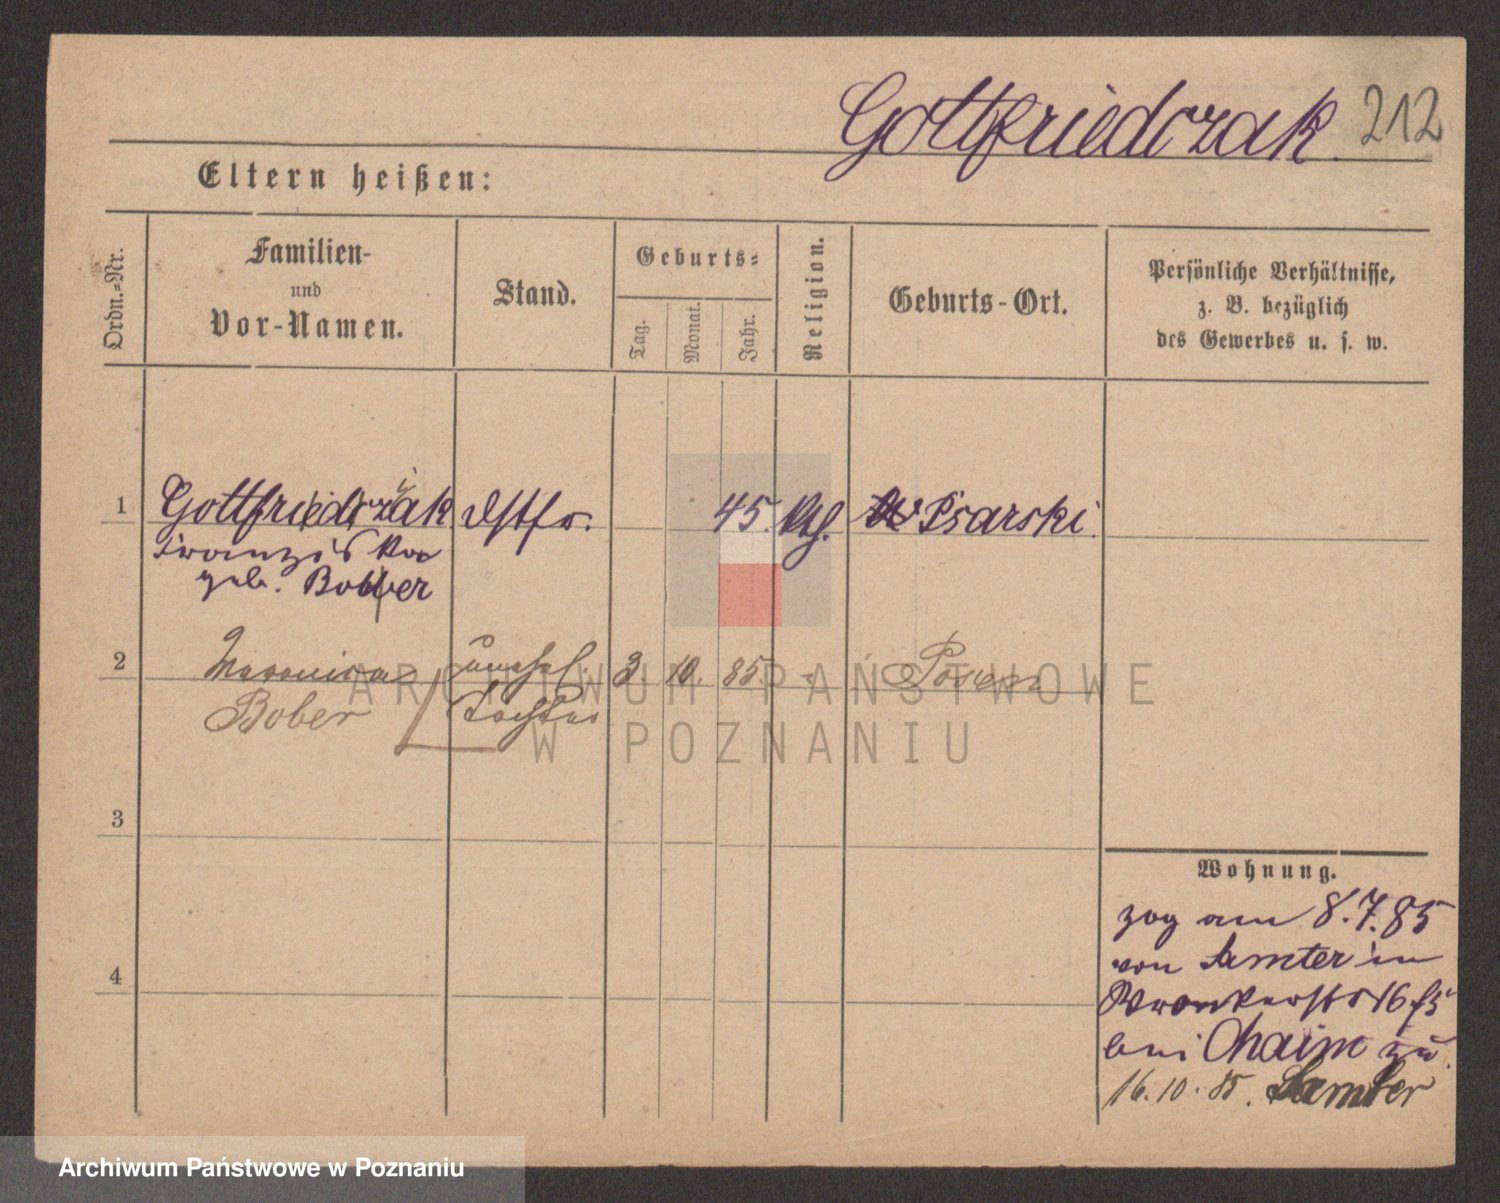 Gottfriedczak 212
Eltern heißen:
Ordn.-Nr.
Familien-
und
Vor-Namen.
Stand.
Geburts-
Tag.
Monat.
Jahr.
Religion.
Geburts-Ort.
Persönliche Verhältnisse,
z. B. bezüglich
des Gewerbes u. s. w.
1 Gottfriedczak 45. Kth. Psarski.
Franziska
geb. Bober
2 unehel. 3. 10. 85. Posen
Bober Tochter
3
4
Wohnung.
zog am 8.7.85
von Samter in
Wronkerstr 16 bei Chaim zu
16.10.85. Samter
ARCHIWUM PAŃSTWOWE
W POZNANIU
Archiwum Państwowe w Poznaniu